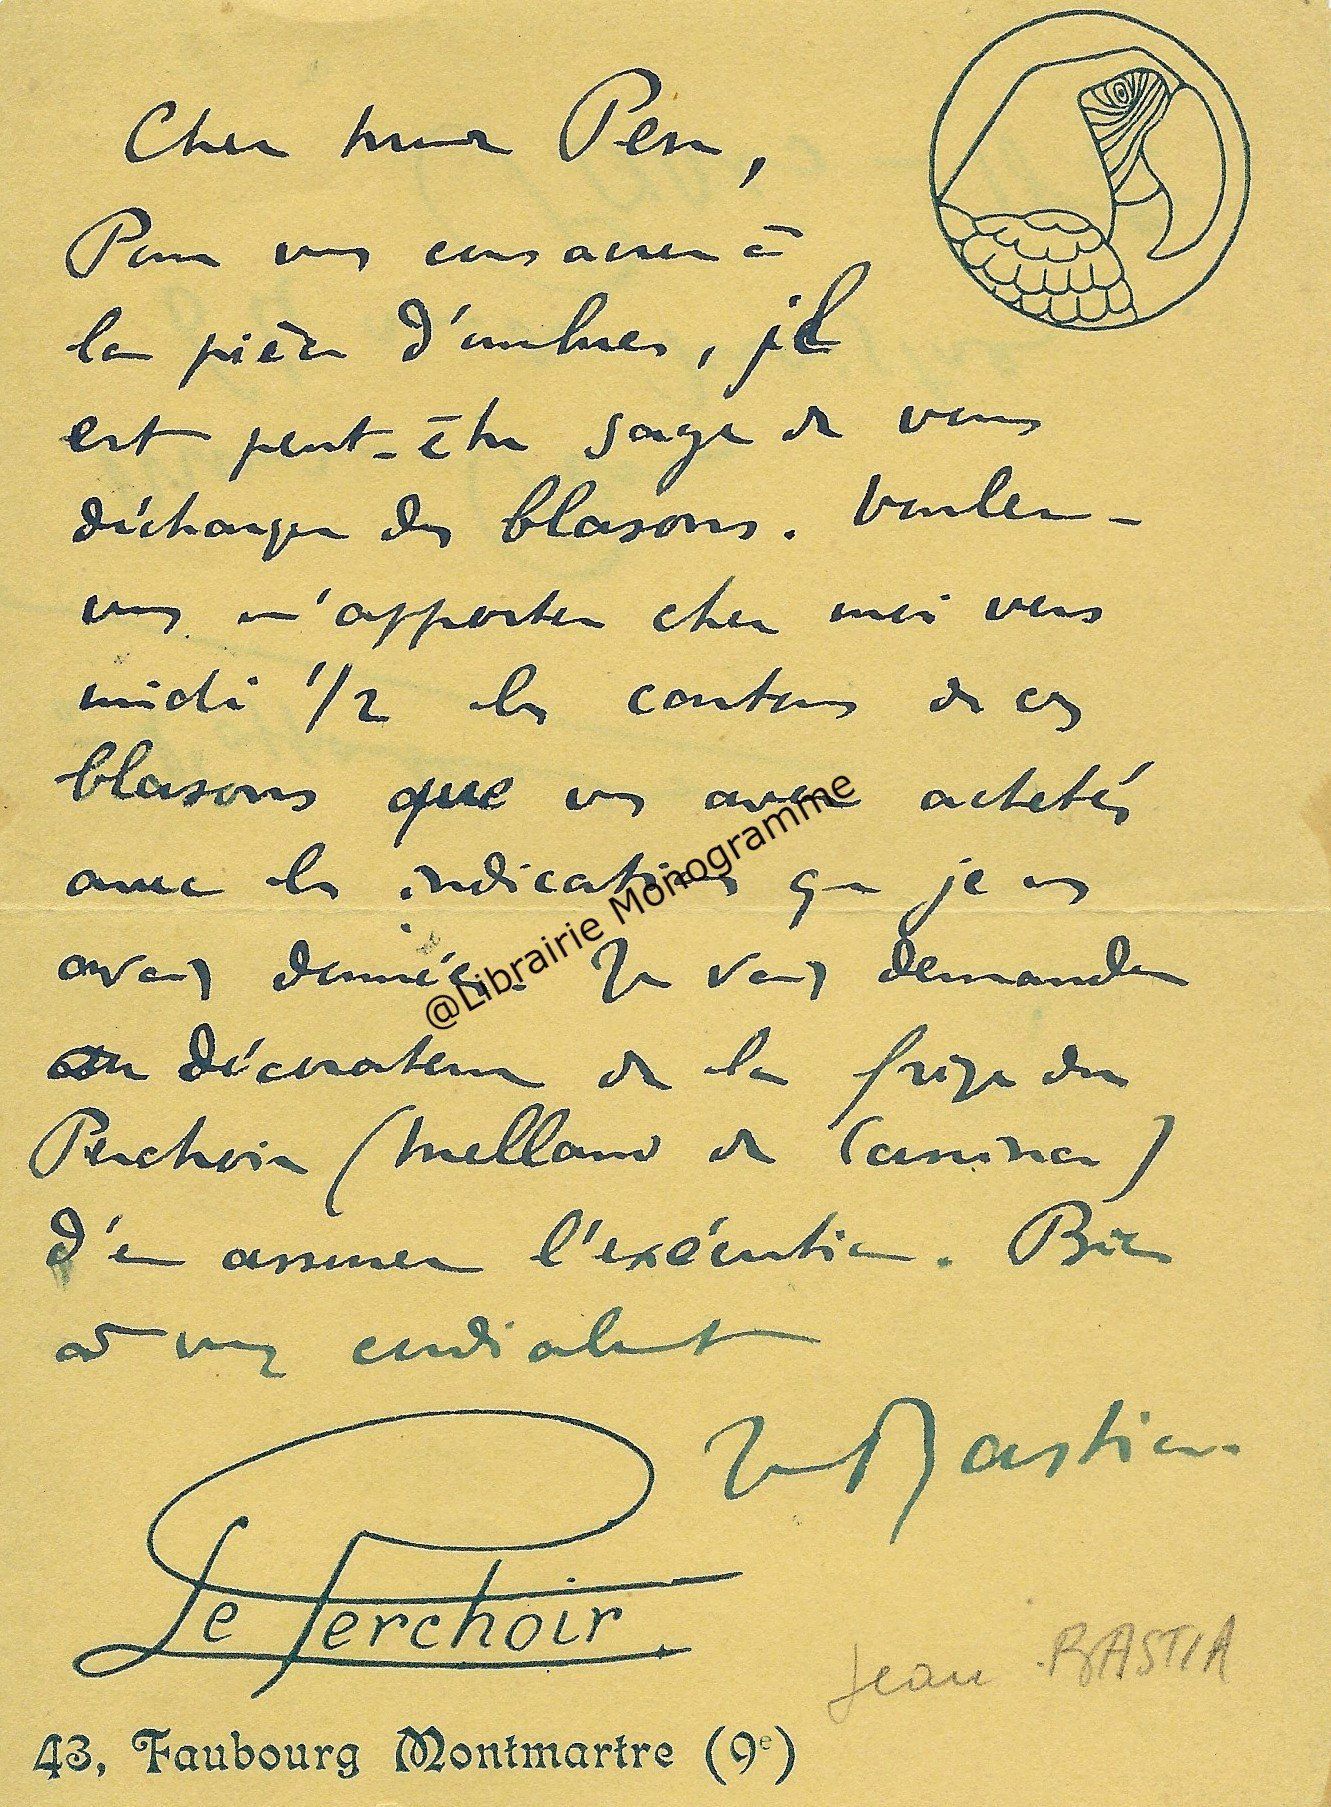 Cher
Pour vous consacrer à
la pièce d'ombres, il
est peut-être sage de vous
décharger des blasons. Voulez-
vous m'apporter chez moi vers
midi 1/2 les cartons de ces
blasons que vs avez achetés
avec les indications que je vs
avais données. Je vais demander
au décorateur de la frize du
Perchoir (
d'en assurer l'exécution. Bien
à vous cordialement
Jean Bastia.
Le Perchoir
Jean BASTIA
43, Faubourg Montmartre (9e)
@Librairie Monogramme